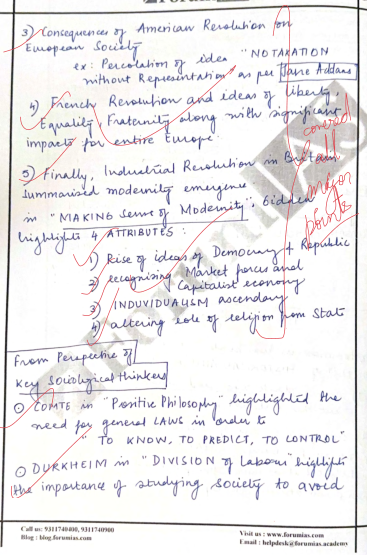 3) Consequences of American Revolution on
European Society
ex: Percolation of idea "NOTAXATION
without Representation" as per Jane Addams
4) French Revolution and ideas of liberty,
Equality, Fraternity along with significant
impacts for entire Europe.
5) Finally, Industrial Revolution in Britain
Summarised modernity emergence
in "MAKING Sense of Modernity", Giddens
highlights 4 ATTRIBUTES:
1) Rise of ideas of Democracy & Republic
2) recognising Market forces and
Capitalist economy
3) INDUVIDUALISM ascendany
4) altering role of religion from State
covered
all
major
points
From Perspective of
Key Sociological thinkers
COMTE in "Positive Philosophy" highlighted the
need for general LAWS in order to
"TO KNOW, TO PREDICT, TO CONTROL"
DURKHEIM in "DIVISION of Labour" highlights
the importance of studying society to avoid
Call us: 9311740400, 9311740900
Blog : blog.forumias.com
Visit us : www.forumias.com
Email : helpdesk@forumias.academy
ForumIAS